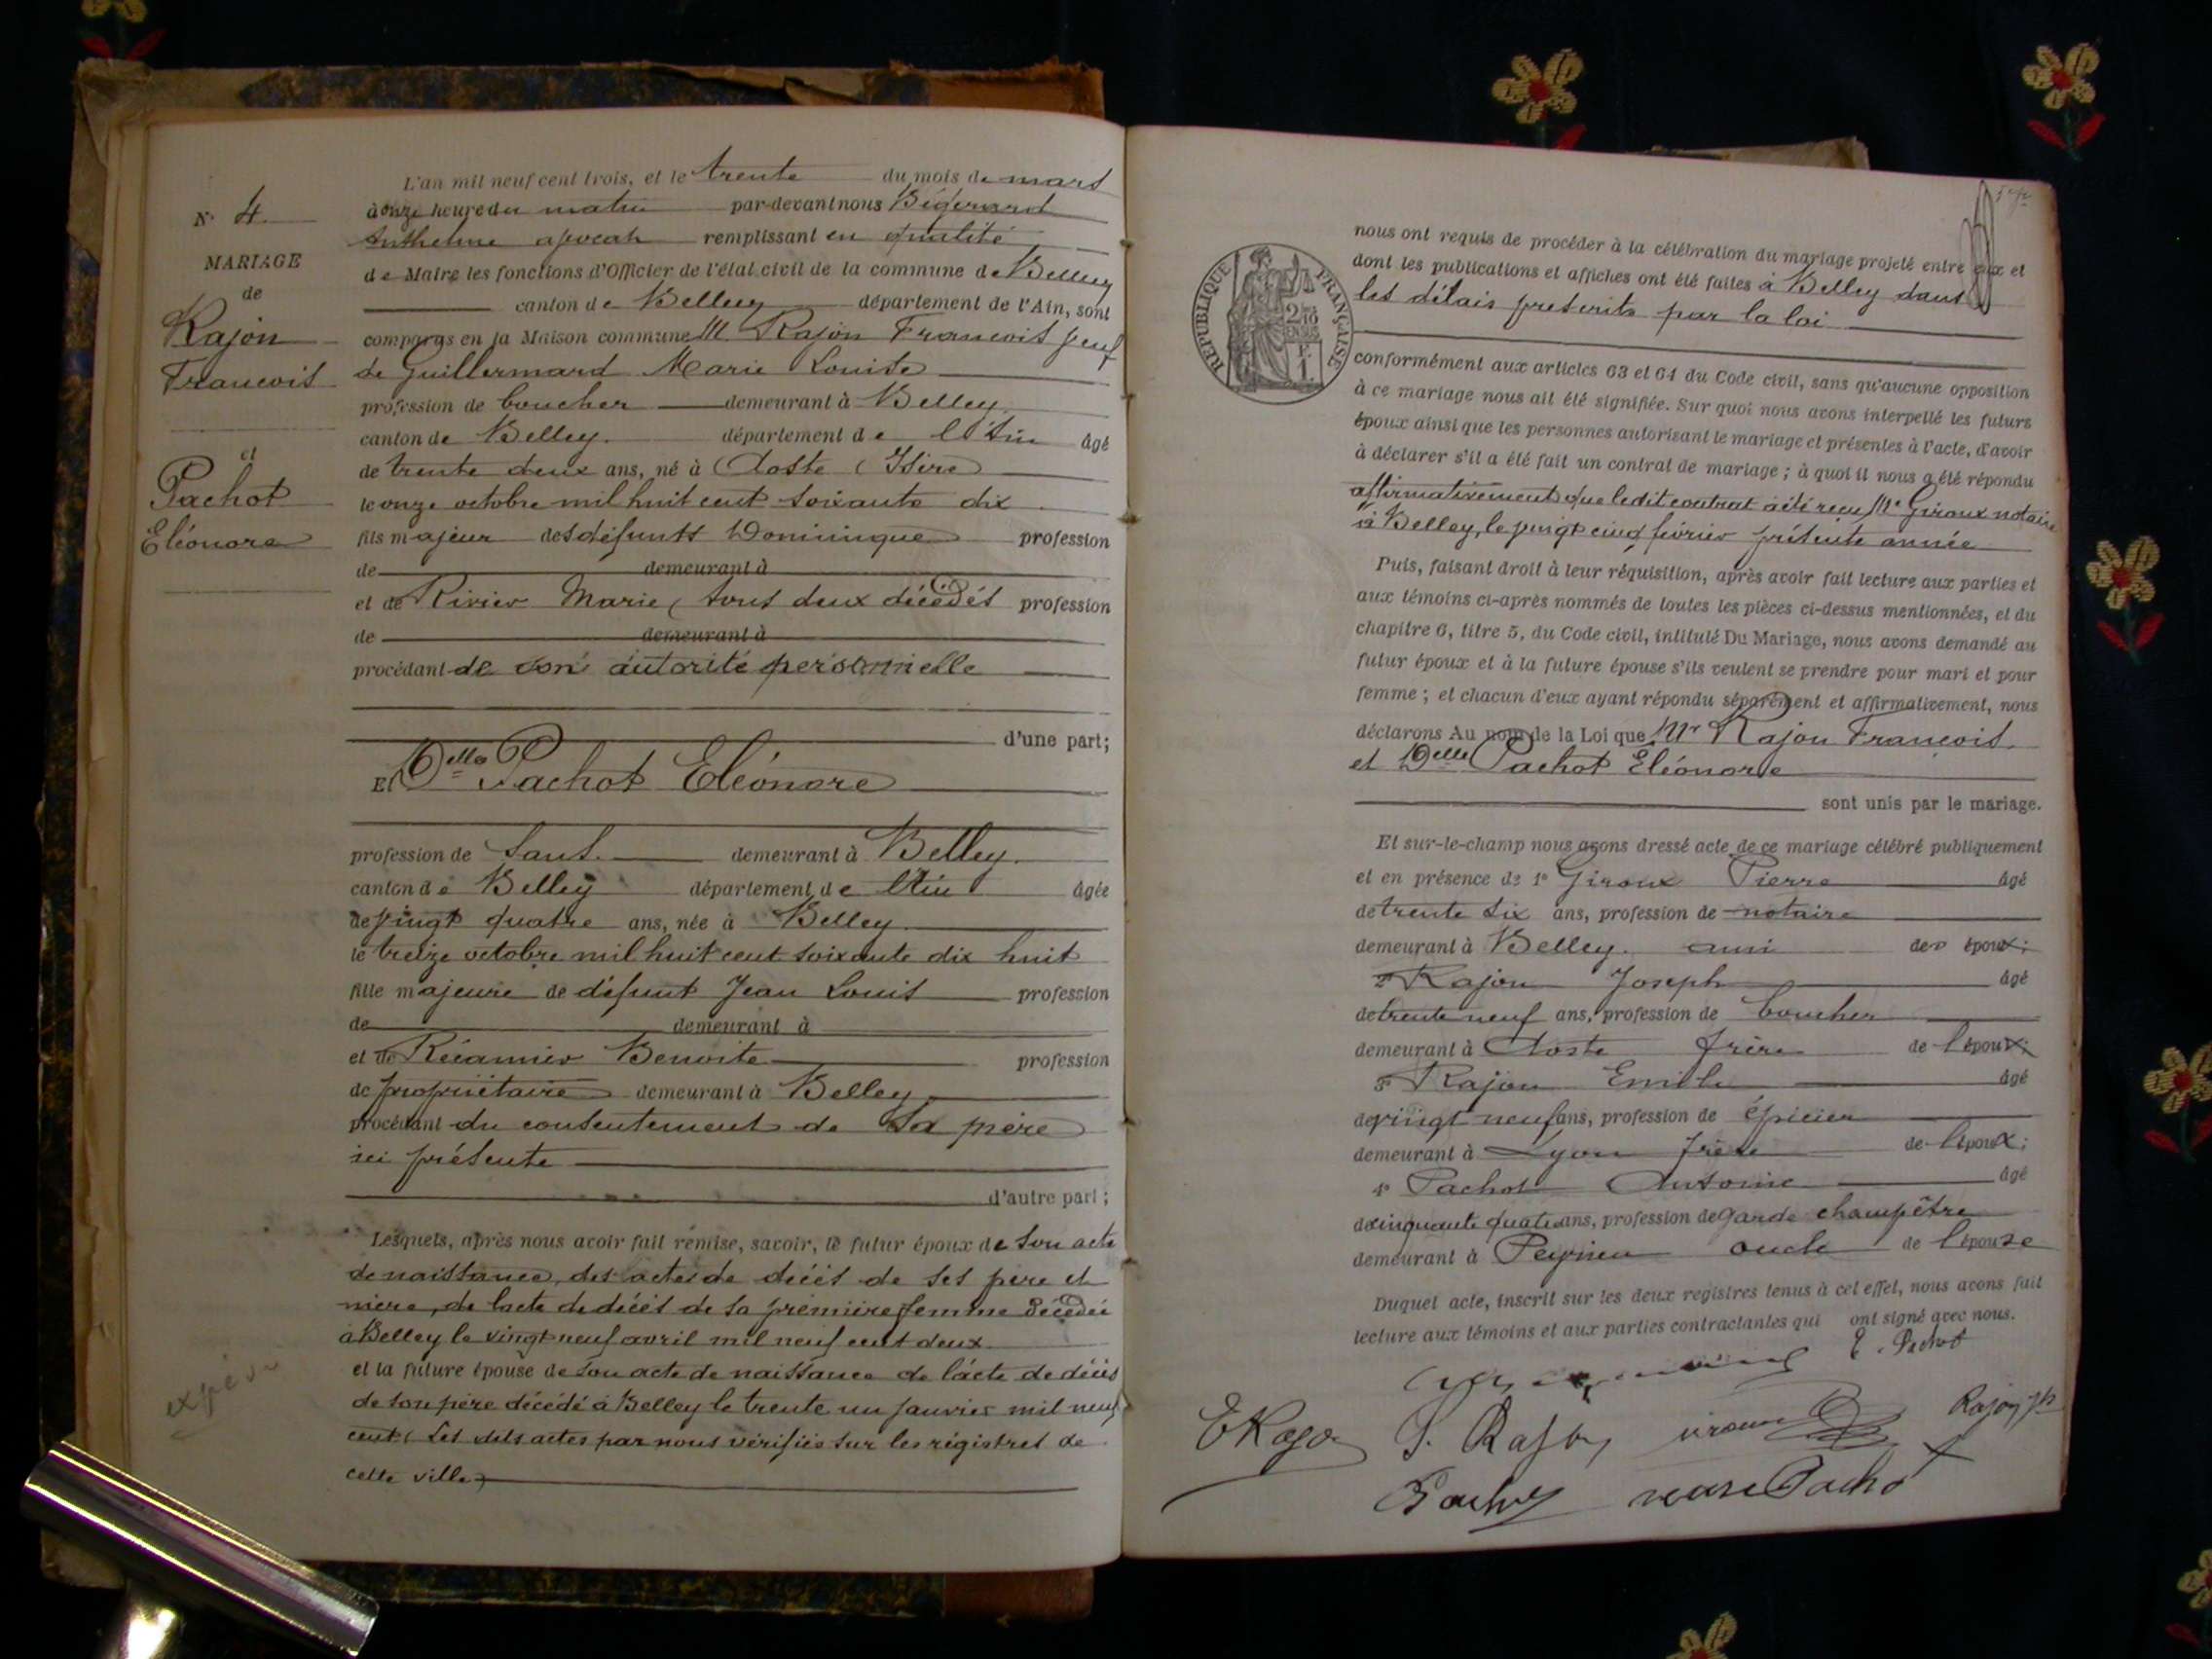 N° 4
MARIAGE
de
Rajon
François
et
Pachot
Eléonore
L'an mil neuf cent trois, et le trente du mois de mars
à onze heure du matin par-devant nous
Anthelme avocat remplissant en qualité
de Maire les fonctions d'Officier de l'état civil de la commune de Belley
canton de Belley département de l'Ain, sont
comparus en la Maison commune M. Rajon François veuf
de Guillermard Marie Louise
profession de boucher demeurant à Belley
canton de Belley département de l'Ain âgé
de trente deux ans, né à Aoste (Isère)
le onze octobre mil huit cent soixante dix
fils majeur des défunts Dominique profession
de demeurant à
et de Rivier Marie (tous deux décédés profession
de demeurant à
procédant de son autorité personnielle
d'une part;
Et Delle Pachot Eléonore
profession de Sans demeurant à Belley
canton de Belley département de l'Ain âgée
de vingt quatre ans, née à Belley
le treize octobre mil huit cent soixante dix huit
fille majeure de défunt Jean Louis profession
de demeurant à
et de Récamier Benoite profession
de propriétaire demeurant à Belley
procédant du consentement de sa mère
ici présente
d'autre part;
Lesquels, après nous avoir fait remise, savoir, le futur époux de son acte
de naissance, des actes de décès de ses père et
mère, de l'acte de décès de sa première femme décédée
à Belley le vingt neuf avril mil neuf cent deux
et la future épouse de son acte de naissance de l'acte de décès
de son père décédé à Belley le trente un janvier mil neuf
cent (Les dits actes par nous vérifiés sur les régistres de
cette ville)
RÉPUBLIQUE FRANÇAISE
nous ont requis de procéder à la célébration du mariage projeté entre eux et
dont les publications et affiches ont été faites à Belley dans
les délais prescrits par la loi
conformément aux articles 63 et 64 du Code civil, sans qu'aucune opposition
à ce mariage nous ait été signifiée. Sur quoi nous avons interpellé les futurs
époux ainsi que les personnes autorisant le mariage et présentes à l'acte, d'avoir
à déclarer s'il a été fait un contrat de mariage; à quoi il nous a été répondu
affirmativement que ledit contrat a été reçu Me Giroux notaire
à Belley, le vingt cinq février présente année
Puis, faisant droit à leur réquisition, après avoir fait lecture aux parties et
aux témoins ci-après nommés de toutes les pièces ci-dessus mentionnées, et du
chapitre 6, titre 5, du Code civil, intitulé Du Mariage, nous avons demandé au
futur époux et à la future épouse s'ils veulent se prendre pour mari et pour
femme; et chacun d'eux ayant répondu séparément et affirmativement, nous
déclarons Au nom de la Loi que Mr Rajon François
et Delle Pachot Eléonore
sont unis par le mariage.
Et sur-le-champ nous avons dressé acte de ce mariage célébré publiquement
et en présence de 1° Giroux Pierre âgé
de trente six ans, profession de notaire
demeurant à Belley ami des époux;
2° Rajon Joseph âgé
de trente neuf ans, profession de boucher
demeurant à Aoste frère de l'époux;
3° Rajon Emile âgé
de vingt neuf ans, profession de épicier
demeurant à Lyon frère de l'époux;
4° Pachot Antoine âgé
de cinquante quatre ans, profession de garde champêtre
demeurant à Peyrieu oncle de l'épouse
Duquel acte, inscrit sur les deux registres tenus à cet effet, nous avons fait
lecture aux témoins et aux parties contractantes qui ont signé avec nous.
E. Pachot
E Rajon
Pachot